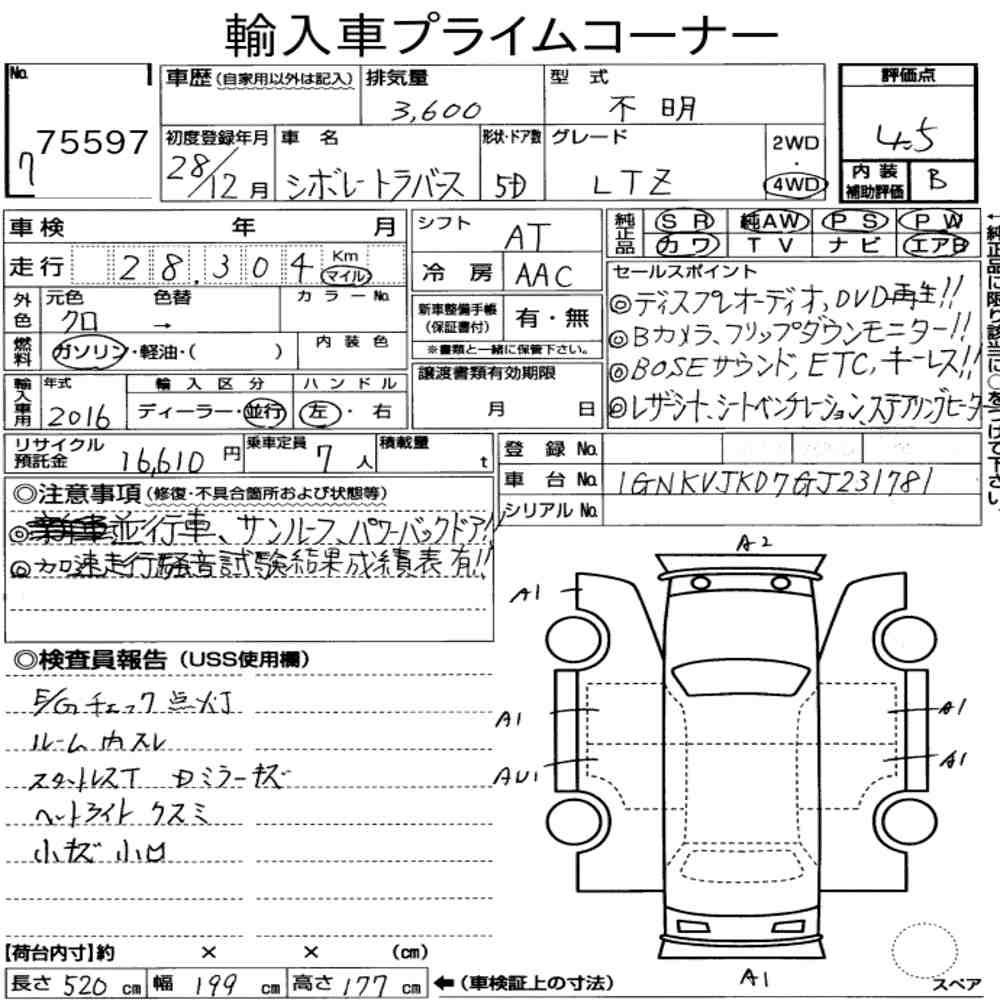 輸入車プライムコーナー
No.
75597
7
車歴 (自家用以外は記入)
排気量
3,600
型 式
不 明
評価点
4.5
内装補助評価
B
初度登録年月
28/12 月
車 名
シボレートラバース
形状・ドア数
5D
グレード
LTZ
2WD
・
4WD
車検 年 月
走行 28,304 Km マイル
外色 元色 色替 カラーNo.
クロ →
燃料 ガソリン・軽油・( )
内 装 色
輸入車用
年式
2016
輸 入 区 分
ディーラー・並行
ハ ン ド ル
左・右
シフト AT
冷 房 AAC
新車整備手帳(保証書付) 有・無
※書類と一緒に保管下さい。
譲渡書類有効期限
月 日
純正品 SR 純AW PS PW
カワ TV ナビ エアB
←純正品に限り該当に○をつけて下さい。
セールスポイント
◎ディスプレオーディオ,DVD再生!!
◎Bカメラ、フリップダウンモニター!!
◎BOSEサウンド, ETC, キーレス!!
◎レザーシート、シートベンチレーション、ステアリングヒーター
リサイクル預託金 16,610 円
乗車定員 7 人
積載量 t
登 録 No.
車 台 No. 1GNKVJKD7GJ231781
シリアル No.
◎注意事項 (修復・不具合箇所および状態等)
◎並行車、サンルーフ、パワーバックドア!!
◎加速走行騒音試験結果成績表有!!
◎検査員報告 (USS使用欄)
E/Gチェック点灯
ルーム内スレ
スタットレスT Dミラーキズ
ヘットライト クスミ
小キズ 小凹
A2
A1
A1
A1
AU1
A1
A1
スペア
【荷台内寸】約 × × (cm)
長さ 520 cm 幅 199 cm 高さ 177 cm ←(車検証上の寸法)